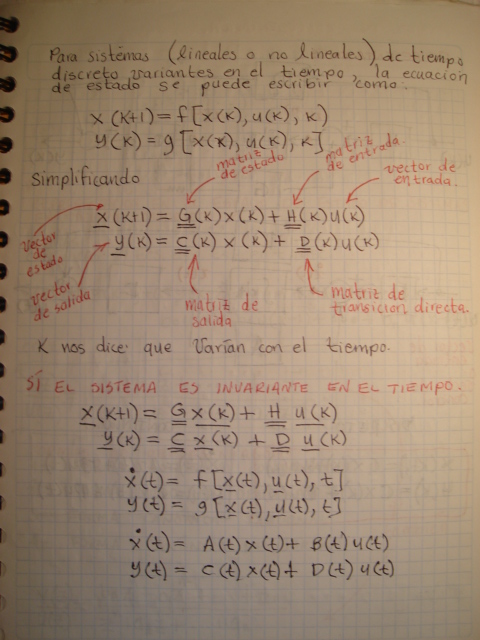 Para sistemas (lineales o no lineales) de tiempo
discreto variantes en el tiempo, la ecuación
de estado se puede escribir como:
x(k+1) = f[x(k), u(k), k]
y(k) = g[x(k), u(k), k]
Simplificando
matriz de estado
matriz de entrada.
vector de entrada.
x(k+1) = G(k)x(k) + H(k)u(k)
y(k) = C(k) x(k) + D(k)u(k)
vector de estado
vector de salida
matriz de salida
matriz de transición directa.
K nos dice que varían con el tiempo.
SÍ EL SISTEMA ES INVARIANTE EN EL TIEMPO.
x(k+1) = G x(k) + H u(k)
y(k) = C x(k) + D u(k)
ẋ(t) = f[x(t), u(t), t]
y(t) = g[x(t), u(t), t]
ẋ(t) = A(t) x(t) + B(t) u(t)
y(t) = C(t) x(t) + D(t) u(t)